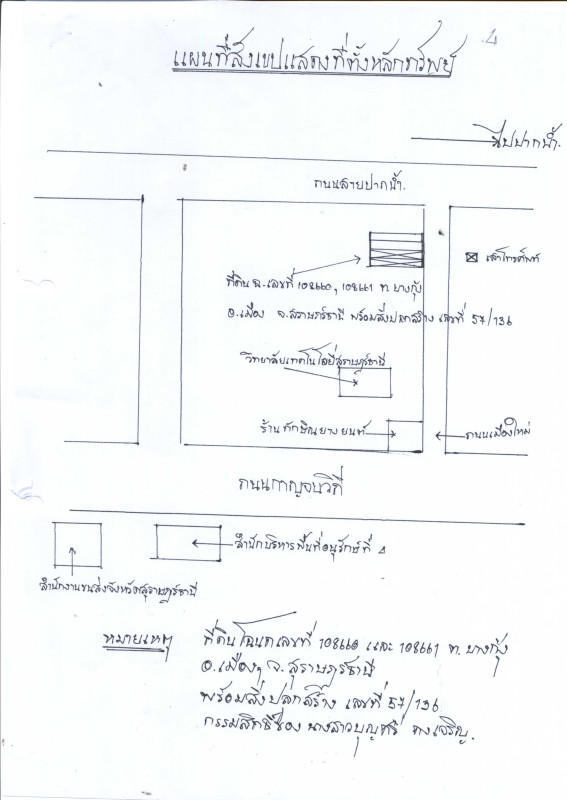 แผนที่สังเขปแสดงที่ตั้งหลักทรัพย์
ไปปากน้ำ.
ถนนสายปากน้ำ.
เสาโทรศัพท์
ที่ดิน ฉ.เลขที่ 108660, 108661 ต.บางกุ้ง
อ.เมือง จ.สุราษฎร์ธานี พร้อมสิ่งปลูกสร้าง เลขที่ 57/136
วิทยาลัยเทคโนโลยีสุราษฎร์ธานี
ร้านทักษิณยางยนต์
ถนนเมืองใหม่
ถนนกาญจนวิถี
สำนักบริหารพื้นที่อนุรักษ์ที่ 4
สำนักงานขนส่งจังหวัดสุราษฎร์ธานี
หมายเหตุ ที่ดินโฉนดเลขที่ 108660 และ 108661 ต.บางกุ้ง
อ.เมืองฯ จ.สุราษฎร์ธานี
พร้อมสิ่งปลูกสร้าง เลขที่ 57/136
กรรมสิทธิ์ของ นางสาวบุญทรี